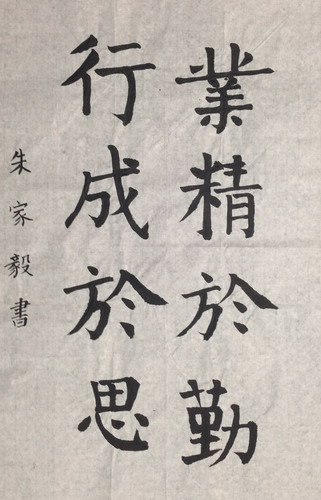 業精於勤
行成於思
朱家毅書